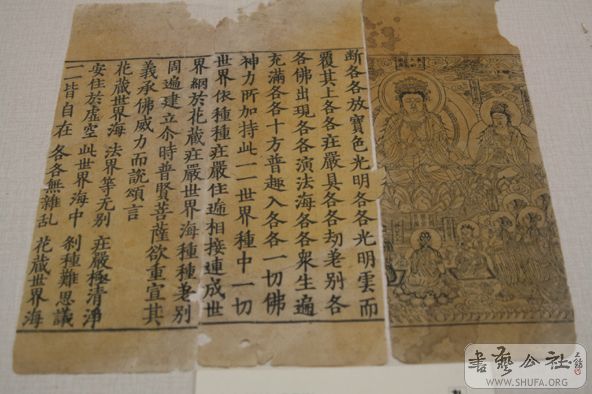 斷各各放寶色光明各各光明雲而
覆其上各各莊嚴具各各劫差別各
各佛出現各各演法海各各衆生遍
充滿各各十方普趣入各各一切佛
神力所加持此一一世界種中一切
世界依種種莊嚴住遞相接連成世
界網於花藏莊嚴世界海種種差別
周遍建立尒時普賢菩薩欲重宣其
義承佛威力而說頌言
花藏世界海 法界等无别 莊嚴極清淨
安住於虛空 此世界海中 刹種難思議
一一皆自在 各各無雜乱 花藏世界海
書藝公社
WWW.SHUFA.ORG